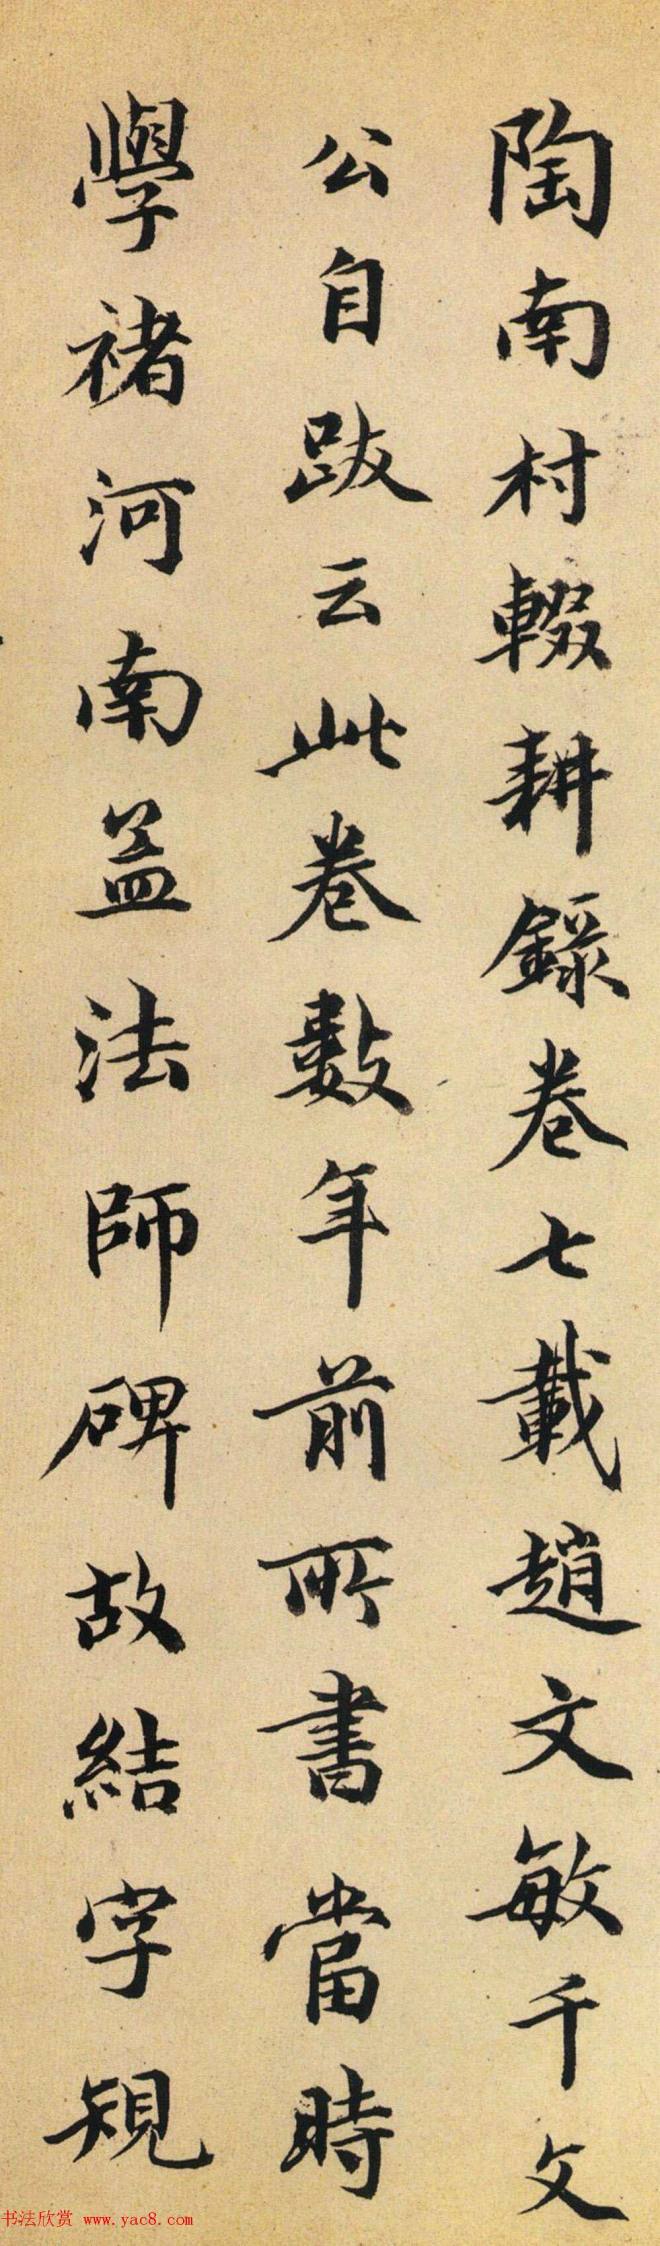 陶南村輟耕錄卷七載趙文敏千文
公自跋云此卷數年前所書當時
學褚河南孟法師碑故結字規
书法欣赏 www.yac8.com